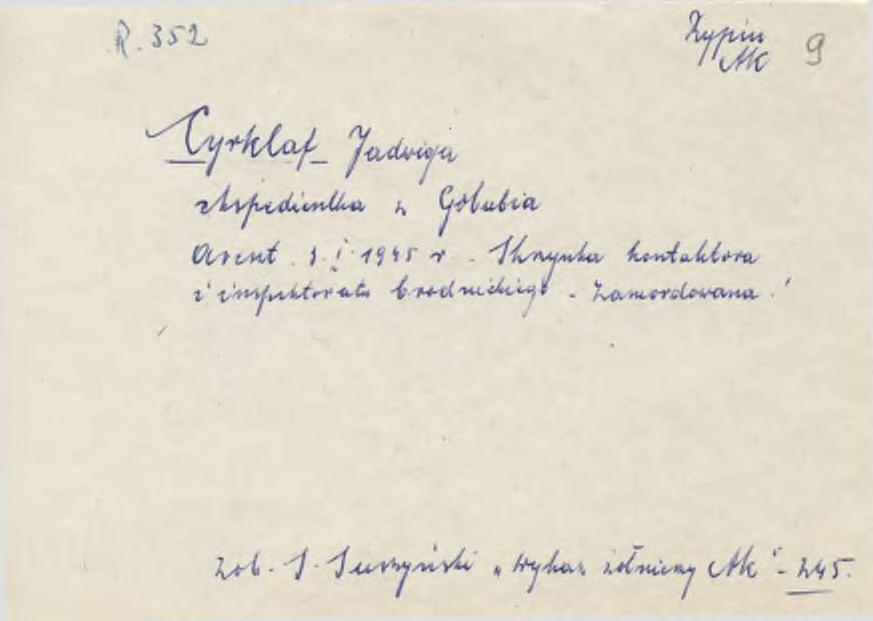 R. 352
Rypin
AK 9
Cyrklaf Jadwiga
ekspedientka z Gołubia
Areszt. 3.I.1945 r. Skrzynka kontaktowa
i inspektoratu brodnickiego - Zamordowana.
zob. S. Suszyński "Wykaz żołnierzy AK" - 245.